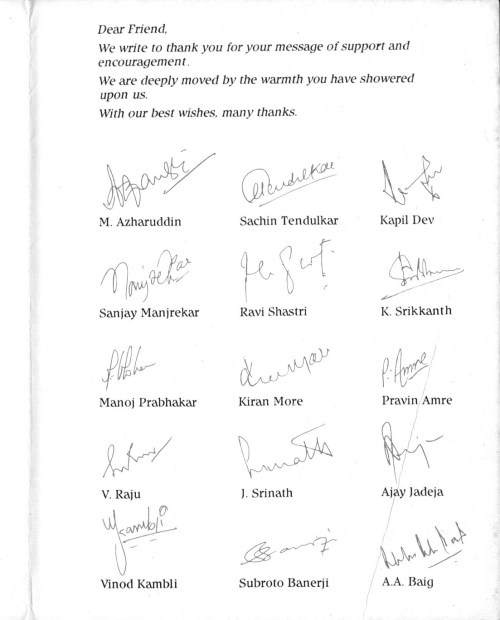 Dear Friend,
We write to thank you for your message of support and
encouragement.
We are deeply moved by the warmth you have showered
upon us.
With our best wishes, many thanks.
M. Azharuddin
Sachin Tendulkar
Kapil Dev
Sanjay Manjrekar
Ravi Shastri
K. Srikkanth
Manoj Prabhakar
Kiran More
Pravin Amre
V. Raju
J. Srinath
Ajay Jadeja
Vinod Kambli
Subroto Banerji
A.A. Baig